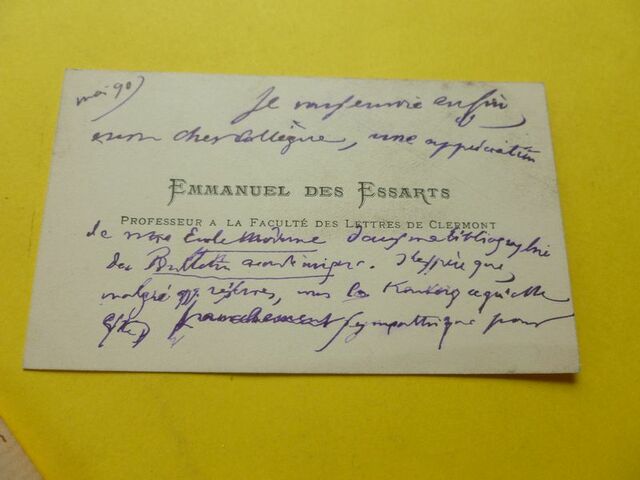 mai 90
Je vous envoie enfin
mon cher collègue, une appréciation
EMMANUEL DES ESSARTS
PROFESSEUR A LA FACULTÉ DES LETTRES DE CLERMONT
de votre École Moderne dans ma bibliographie
du Bulletin académique. J'espère que,
malgré qq. réserves, vous la
franchement sympathique pour